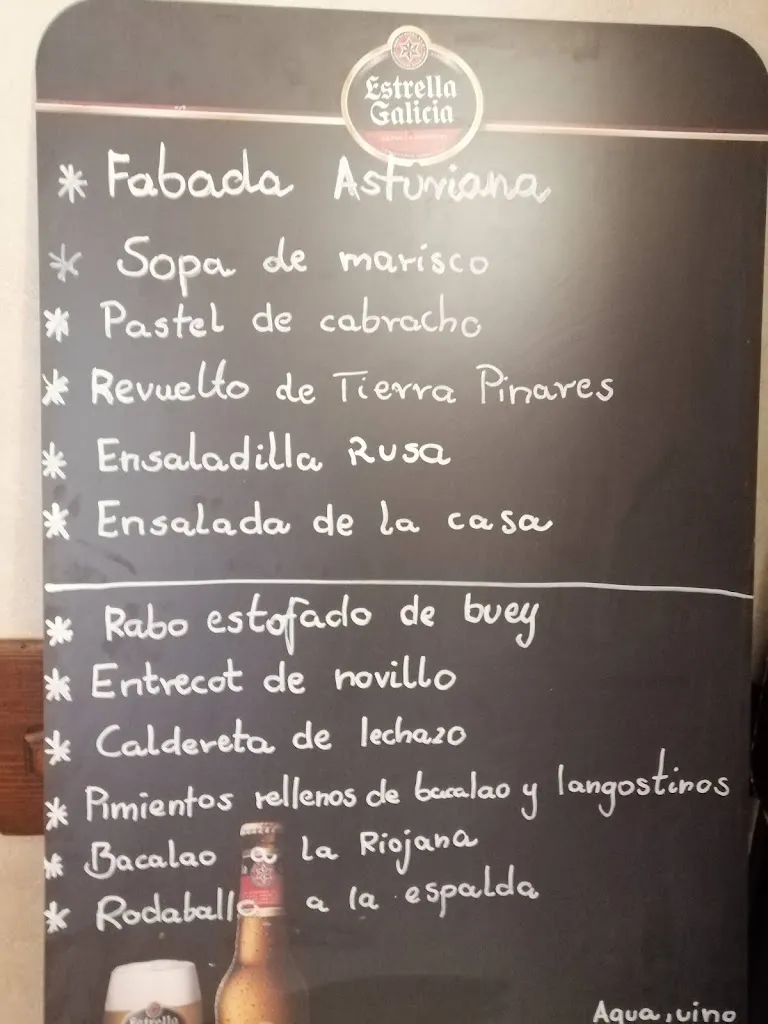 Estrella
Galicia
* Fabada Asturiana
* Sopa de marisco
* Pastel de cabracho
* Revuelto de Tierra Pinares
* Ensaladilla Rusa
* Ensalada de la casa
* Rabo estofado de buey
* Entrecot de novillo
* Caldereta de lechazo
* Pimientos rellenos de bacalao y langostinos
* Bacalao a la Riojana
* Rodaballo a la espalda
Estrella
Agua, vino